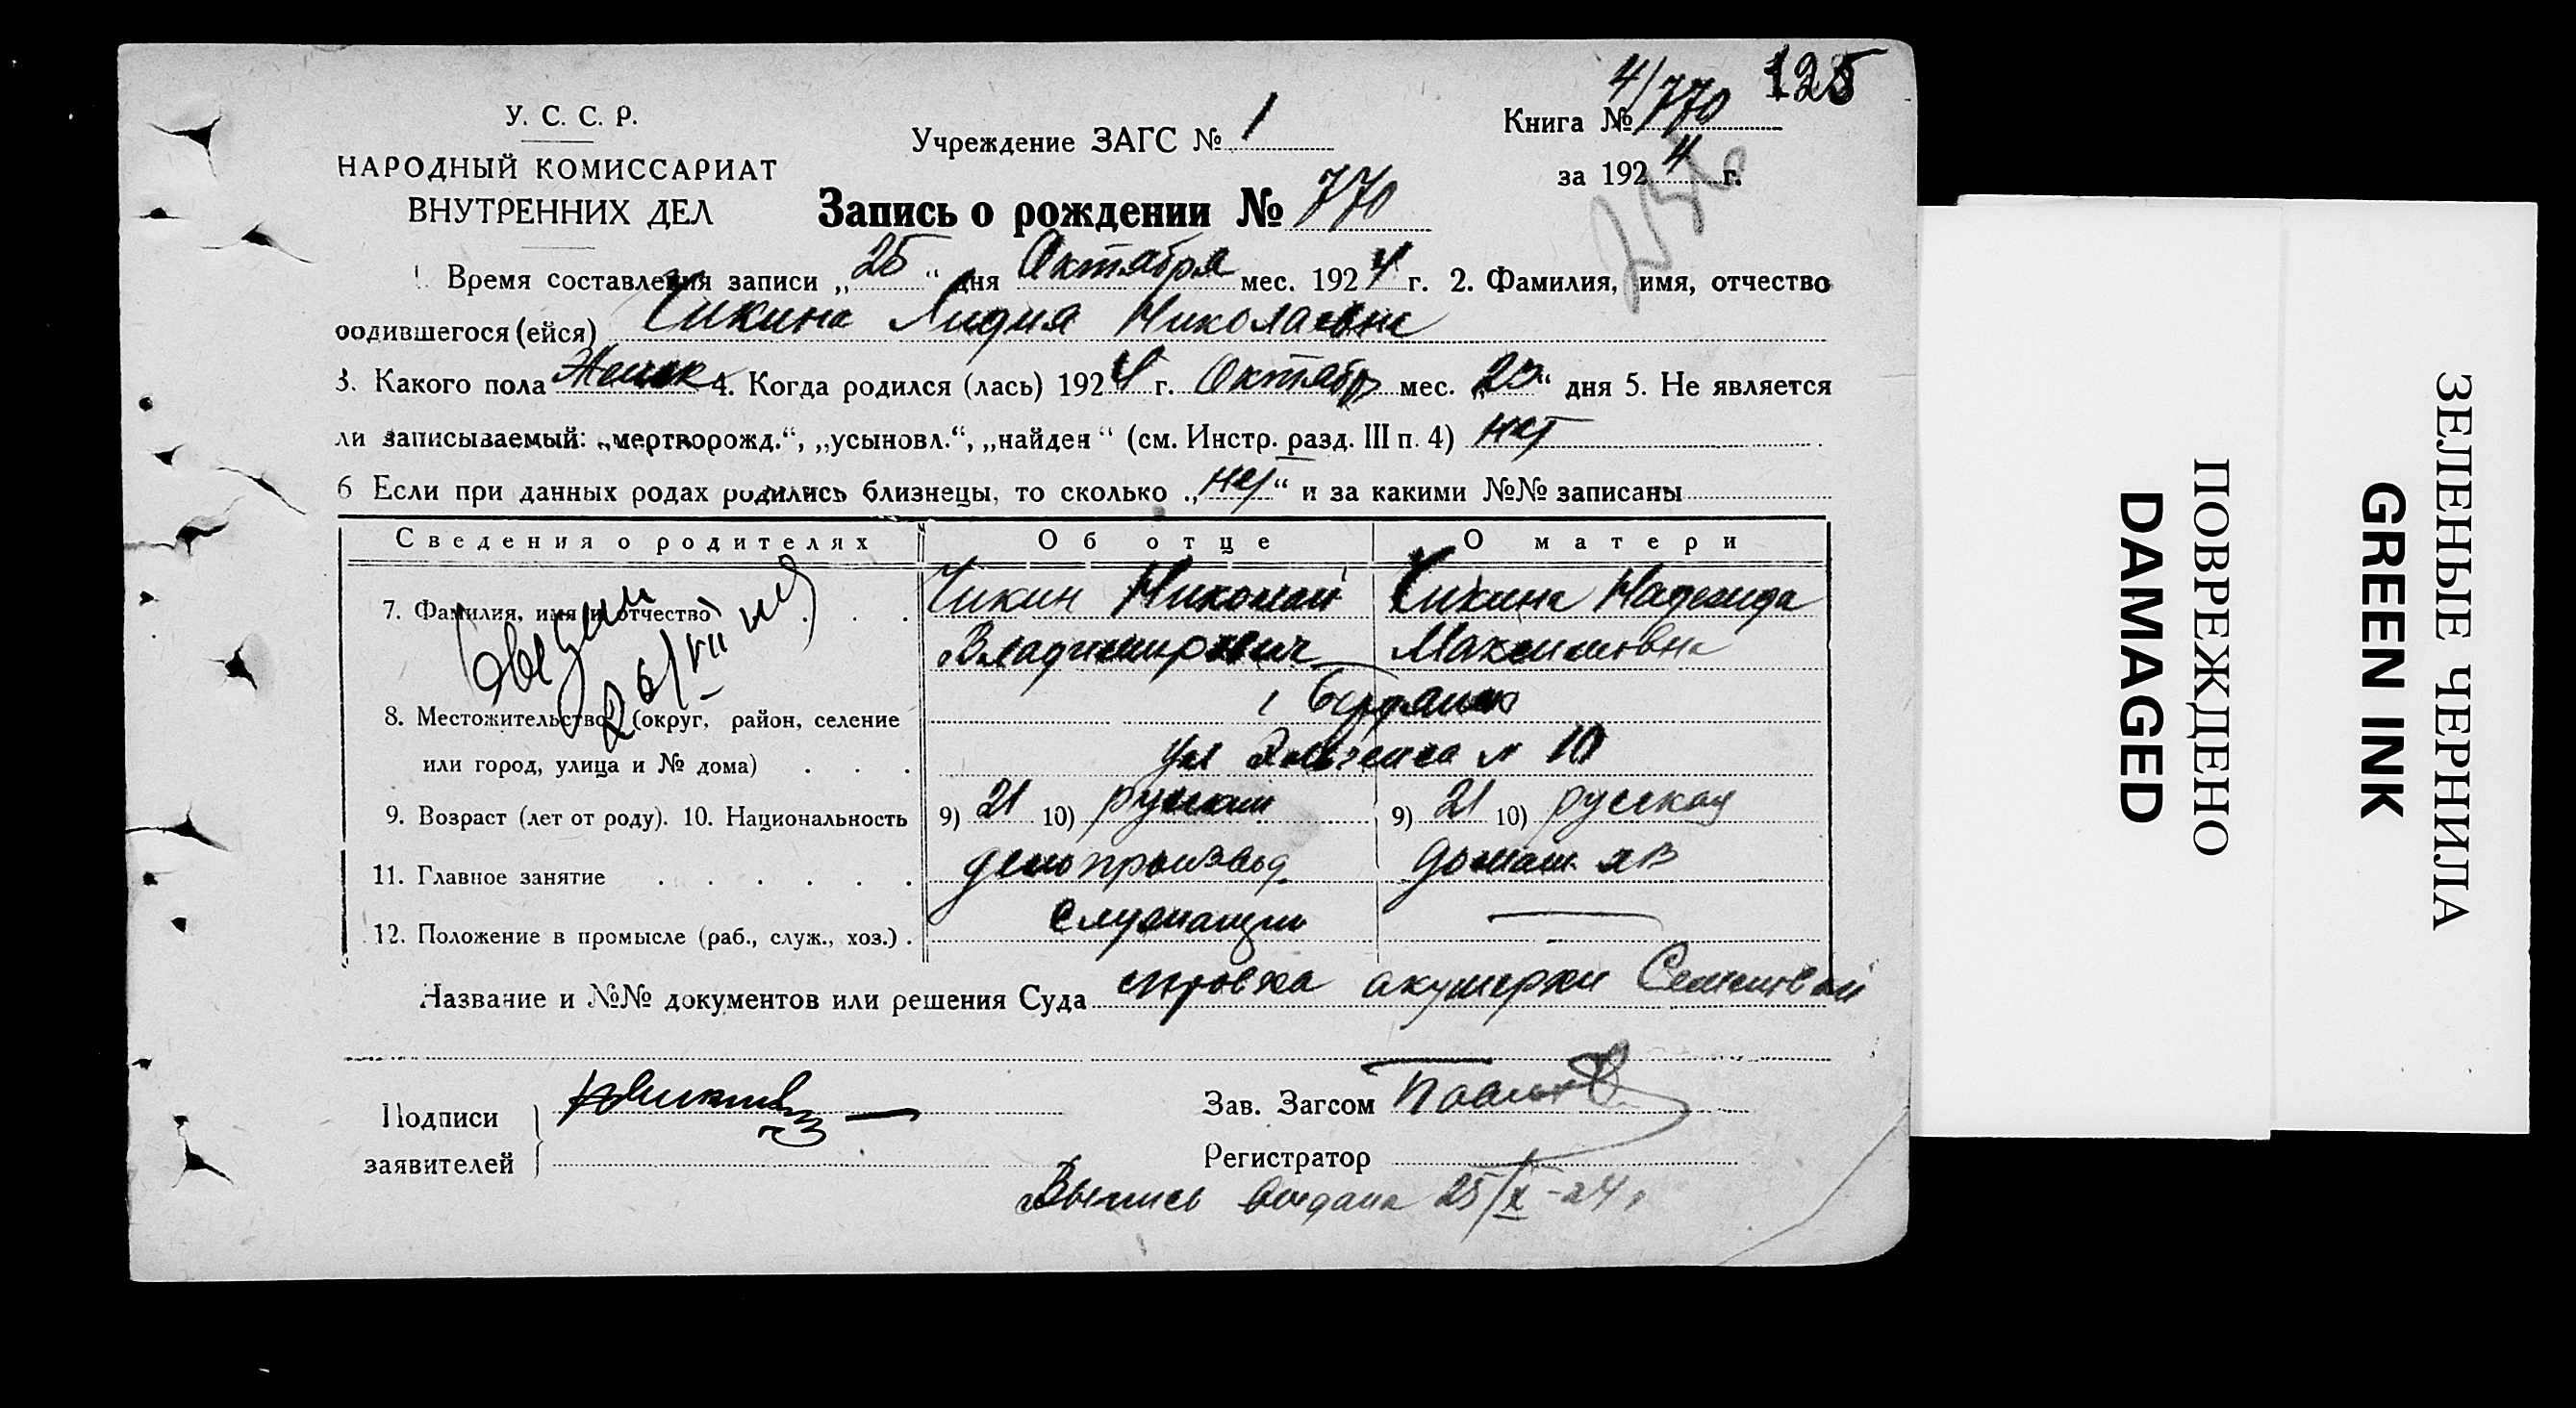 125
У. С. С. Р.
НАРОДНЫЙ КОМИССАРИАТ
ВНУТРЕННИХ ДЕЛ
Учреждение ЗАГС № 1
Книга № 4/770
за 1924 г.
Запись о рождении № 770
1. Время составления записи „25“ дня Октября мес. 1924 г. 2. Фамилия, имя, отчество
родившегося (ейся) Чикина Лидия Николаевна
3. Какого пола Женск 4. Когда родился (лась) 1924 г. Октябр мес. „23“ дня 5. Не является
ли записываемый: „мертворожд.“, „усыновл.“, „найден“ (см. Инстр. разд. III п. 4) нет
6 Если при данных родах родились близнецы, то сколько „нет“ и за какими №№ записаны
Сведения о родителях Об отце О матери
7. Фамилия, имя и отчество . . . Чикин Николай Чикина Надежда
Владимирович Максимовна
8. Местожительство (округ, район, селение г Бердянск
или город, улица и № дома) . . . ул № 10
9. Возраст (лет от роду). 10. Национальность 9) 21 10) русский 9) 21 10) русская
11. Главное занятие . . . . . . делопроизвод. домаш. хоз
12. Положение в промысле (раб., служ., хоз.) . служащий —
Название и №№ документов или решения Суда справка акушерки
Подписи
заявителей
Зав. Загсом
Регистратор
Выпись выдана 25/X-24 г
ПОВРЕЖДЕНО
DAMAGED
ЗЕЛЕНЫЕ ЧЕРНИЛА
GREEN INK